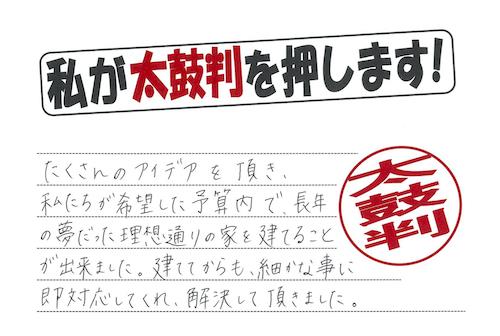 私が太鼓判を押します!
たくさんのアイデアを頂き、
私たちが希望した予算内で、長年
の夢だった理想通りの家を建てること
が出来ました。建ててからも、細かな事に
即対応してくれ、解決して頂きました。
太鼓判